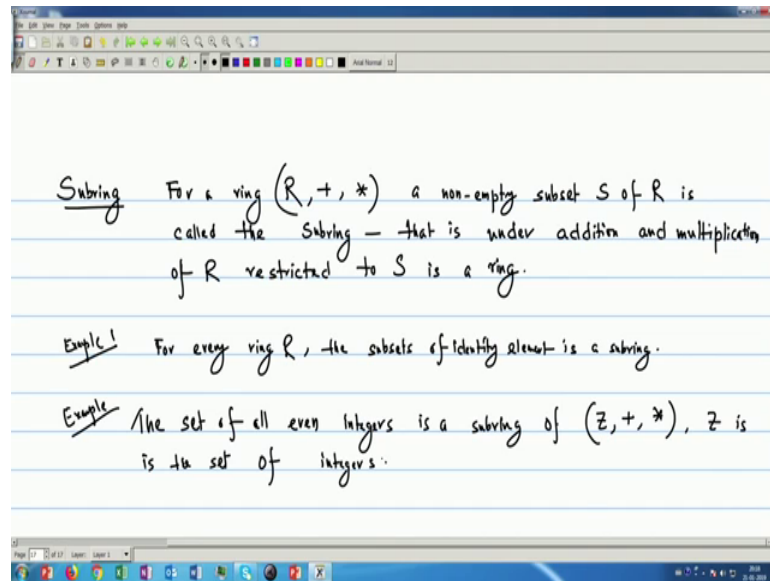 Journal
File Edit View Page Tools Options Help
Arial Normal 12
Subring For a ring (R, +, *) a non-empty subset S of R is
called the Subring – that is under addition and multiplication
of R restricted to S is a ring.
Example 1 For every ring R, the subsets of identity element is a subring.
Example The set of all even integers is a subring of (Z, +, *), Z is
is the set of integers.
Page 17 of 17 Layer: Layer 1